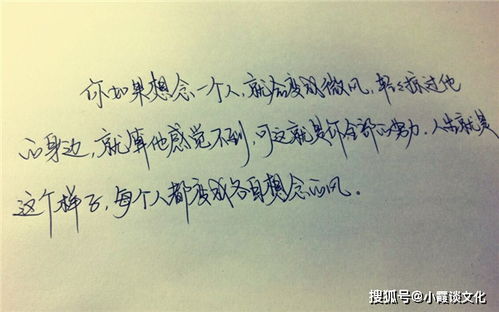 你如果想念一个人,就会变成微风,轻轻掠过他
的身边,就算他感觉不到,可这就是你全部的努力.人生就是
这个样子,每个人都变成各自想念的风.
搜狐号@小霞谈文化